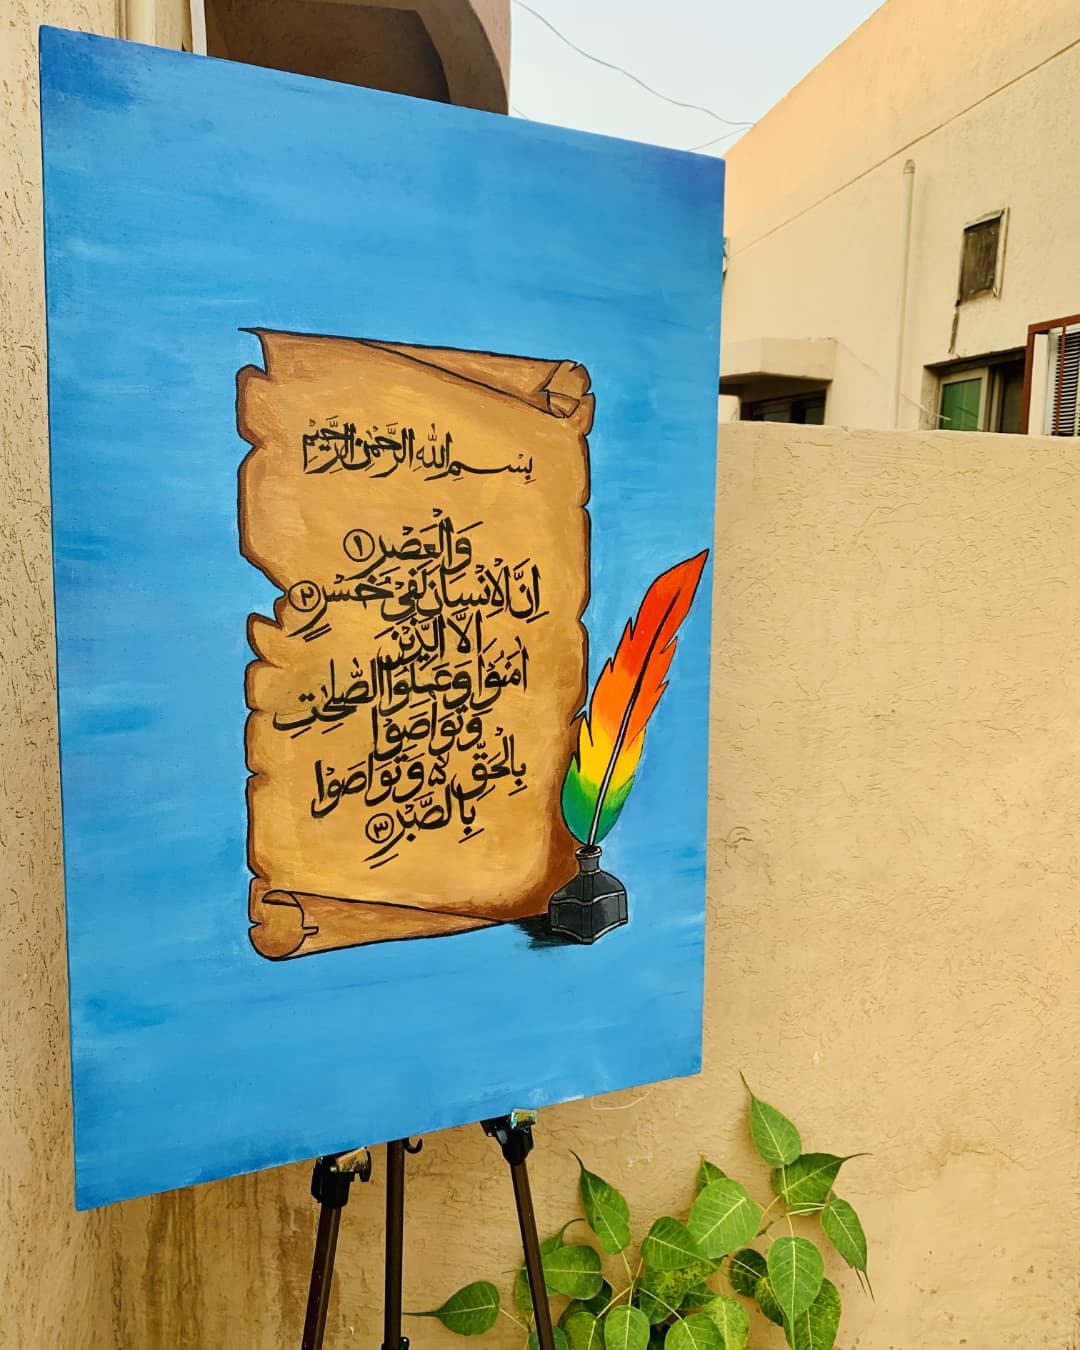 بِسْمِ اللهِ الرَّحْمٰنِ الرَّحِيْمِ
وَالْعَصْرِ ١
اِنَّ الْاِنْسَانَ لَفِيْ خُسْرٍ ٢
اِلَّا الَّذِيْنَ
اٰمَنُوْا وَعَمِلُوا الصّٰلِحٰتِ
وَتَوَاصَوْا
بِالْحَقِّ ۙ وَتَوَاصَوْا
بِالصَّبْرِ ٣